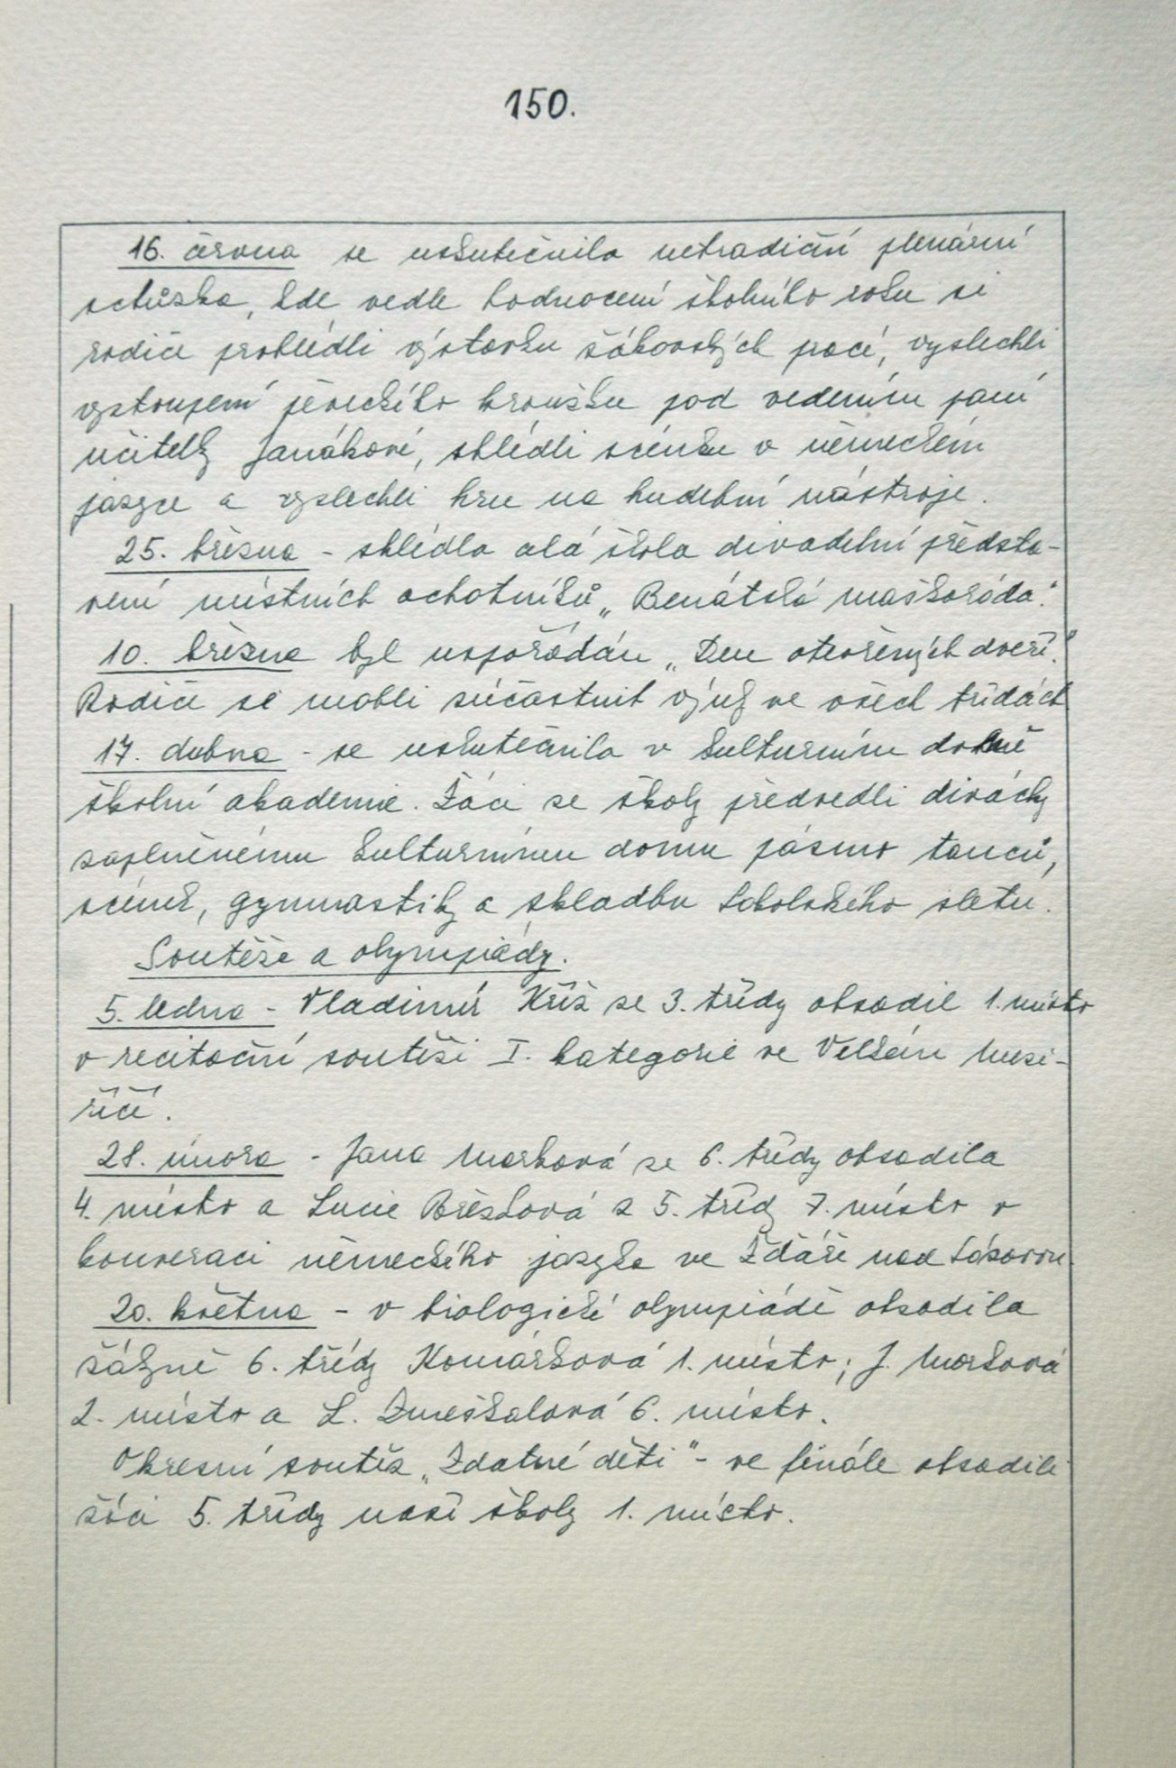 150.
16. června se uskutečnila netradiční plenární
schůzka, kde vedle hodnocení školního roku si
rodiče prohlédli výstavku žákovských prací, vyslechli
vystoupení pěveckého kroužku pod vedením paní
učitelky Janákové, shlédli scénku v německém
jazyce a vyslechli hru na hudební nástroje.
25. března - shlédla celá škola divadelní předsta-
vení místních ochotníků „Benátská maškaráda".
10. března byl uspořádán „Den otevřených dveří."
Rodiče se mohli zúčastnit výuky ve všech třídách
17. dubna - se uskutečnila v kulturním domě
školní akademie. Žáci ze školy předvedli diváky
zaplněnému kulturnímu domu pásmo tanců,
scének, gymnastiky a skladbu Sokolského sletu.
Soutěže a olympiády.
5. ledna - Vladimír Kříž ze 3. třídy obsadil 1. místo
v recitační soutěži I. kategorie ve Velkém Mezi-
říčí.
28. února - Jana Marková ze 6. třídy obsadila
4. místo a Lucie Břežková z 5. třídy 7. místo v
konveraci německého jazyka ve Žďáře nad Sázavou.
20. května - v biologické olympiádě obsadila
žákyně 6. třídy Komárková 1. místo; J. Marková
2. místo a L. Zmeškalová 6. místo.
Okresní soutěž „Zdatné děti" - ve finále obsadili
žáci 5. třídy naší školy 1. místo.